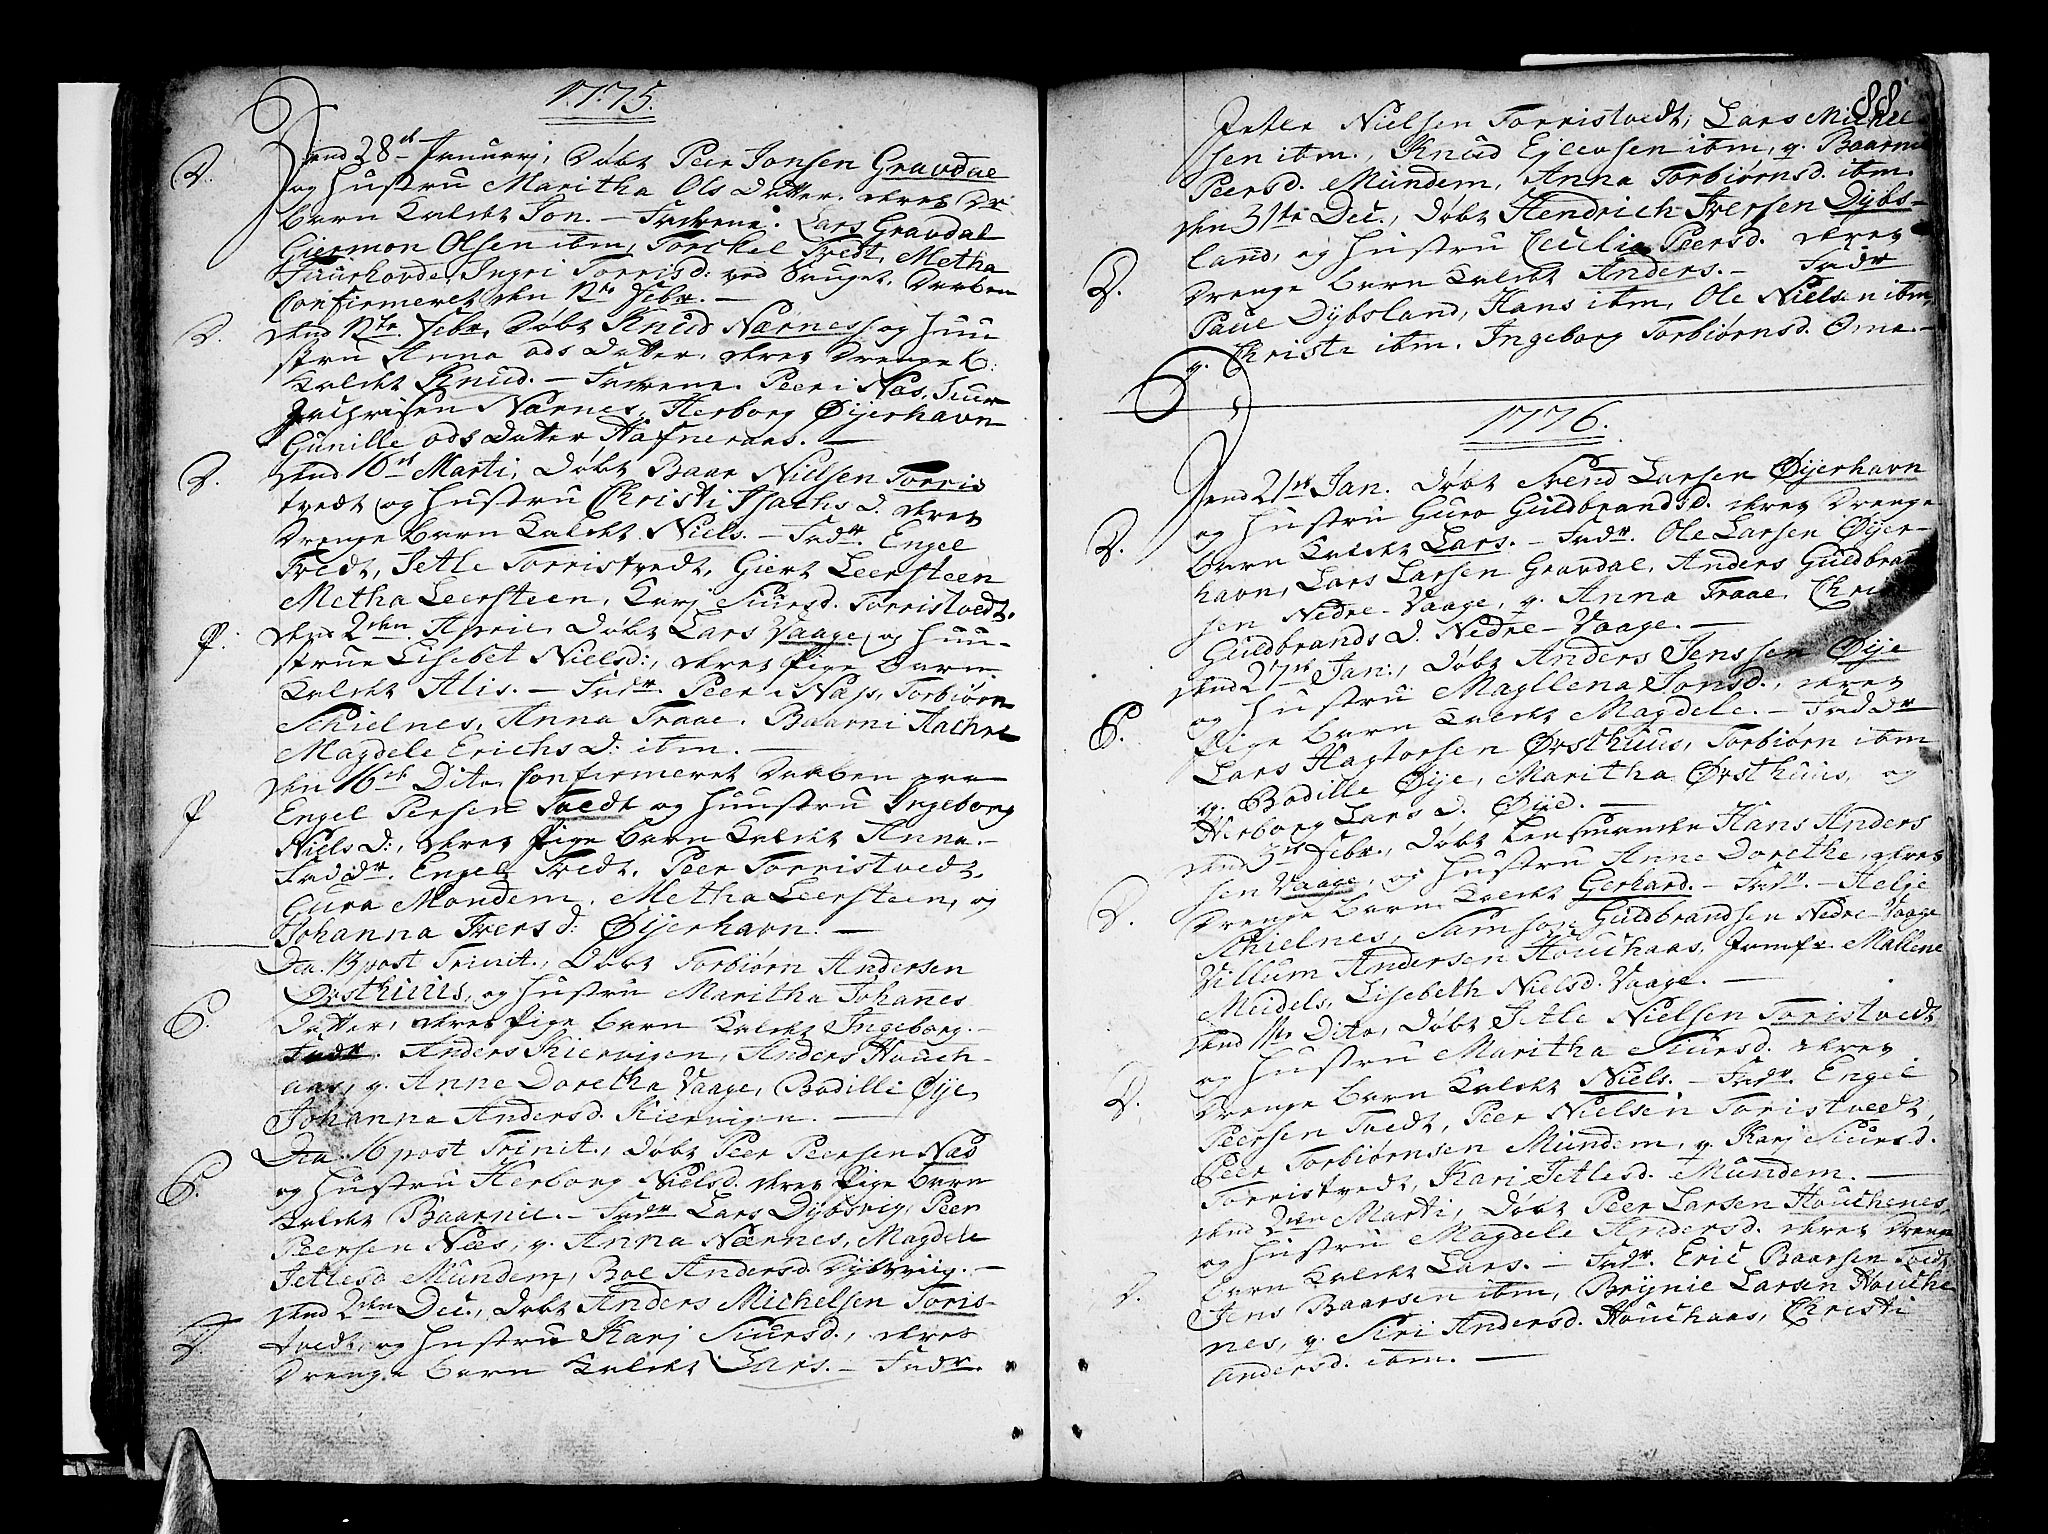 1775.
Dend 28de Januarj, Døbt Peer Jonsen Gravdal
D. og Hustru Maritha Ols Datter, deres Dr
barn kaldet Jon. — Fadrene. Lars Gravdal
Giermon Olsen ibm, Torckel Tvedt, Metha
Ingri Torrisd: ved Sauget, Daaben
Confirmeret den 12te Febr. —
D. dend 12te Febr, Døbt Knud Nærness og Huu
stru Anna ods Datter, deres Drenge b:
kaldet Knud. — Fadrene. Peer i Næs, Siur
Zachrisen Nærnes, Herborg Øijerhavn
Gunille ods Datter Hafneraas. —
D. dend 16de Marti, Døbt Baar Nielsen Torris
tvedt og Hustru Christi Isachs D. deres
Drenge barn kaldet Niels. — Fadr. Engel
Tvedt, Jetle Torristvedt, Giert Leersteen
Metha Leersteen, Karj Siursd. Torristvedt.
P. dend 2den April, Døbt Lars Vaage, og Huu-
strue Lisebet Nielsd:, deres Pige barn
kaldet Alis. — Fadr. Peer i Næss, Torbiørn
Schielnes, Anna Traae, Baarni
Magdele Erichs D: ibm. —
den 16de Dito Confirmeret Daaben paa
P Engel Persen Tvedt og Huustru Ingeborg
Niels D:, deres Pige barn kaldet Anna. —
Faddr. Engel Tvedt, Peer Torristvedt,
Gura Mondem, Metha Leersteen, og
Johanna Ivers d: Øijerhavn. —
Dca. 13 post Trinit., Døbt Torbiørn Andersen
P. Ørsthuus, og Hustru Maritha Johanes
Datter, deres Pige barn kaldet Ingeborg. —
Fadr. Anders Kiervigen, Anders Houch-
aas, q. Anne Doretha Vaage, Bodille Øije,
Johanna Andersd. Kiervigen. —
Dca. 16 post Trinit., Døbt Peer Peersen Næs
P. og Hustru Herborg Nielsd. deres Pige barn
kaldet Baarnie. — Fadr Lars Dybsvig, Peer
Peersen Næs, q. Anna Nærnes, Magdele
Jetlesd Mundem, Boe Andersd. Dybsvig. —
dend 2den Dec., Døbt Anders Michelsen Toris-
D. tvedt, og Hustru Karj Siursd., deres
Drenge barn kaldet Lars. — Fadr.
88
Peter Nielsen Torristvedt, Lars Michel
sen ibm., Knud Ejlevsen ibm, q. Baarnie
Peersd. Mundem, Anna Torbiørnsd. ibm.
den 31te Dec., Døbt Hendrich Iversen Dybs-
land, og Hustru Cecilia Peersd. deres
D. Drenge barn kaldet Anders. — Fadr
Paul Dybsland, Hans ibm, Ole Nielsen ibm,
q. Christi ibm. Ingeborg Torbiørnsd. Oma. —
1776.
Dend 21de Jan. Døbt Svend Larsen Øijerhavn
og Hustru Guro Guldbrandsd. deres Drenge
D. barn kaldet Lars. — Fadr. Ole Larsen Øijer-
havn, Lars Larsen Gravdal, Anders Guldbran
sen Nedre-Vaage, q. Anna Traae,
Guldbrands D. Nedre-Vaage. —
dend 27de Jan:, Døbt Anders Jenssen Øije
og Hustru Magllena Jonsd., deres
P. Pige barn kaldet Magdele. — Faddr
Lars Hagtorsen Ørsthuus, Torbiørn ibm
q. Bodille Øije, Maritha Ørsthuus, og
Herborg Lars D. Øije. —
dend 3de Febr., Døbt Lensmanden Hans Anders
sen Vaage, og Hustru Anne Dorethe, deres
D. Drenge barn kaldet Gerhard. — Fadr. — Helje
Schielnes, Samson Guldbrandsen Nedre-Vaage
Villum Andersen Houchaas, Jomfr. Mallene
Meidels, Lisebeth Nielsd. Vaage. —
dend 11te Dito, Døbt Jetle Nielsen Toristvedt
og Hustru Maritha Siursd. deres
D. Drenge barn kaldet Niels. — Fadr. Engel
Peersen Tvedt, Peer Nielsen Toristvedt,
Peer Torbiørnsen Mundem, q. Karj Siursd.
Torristvedt, Kari Jetlesd. Mundem. —
dend 2den Marti, Døbt Peer Larsen Houchenes,
og Hustru Magdele Andersd. deres Drenge
D. barn kaldet Lars. — Fadr. Eric Baarsen Tvedt
Jens Baarsen ibm, Brynie Larsen Houche
nes, q. Siri Andersd. Houchaas, Christi
Andersd. ibm. —